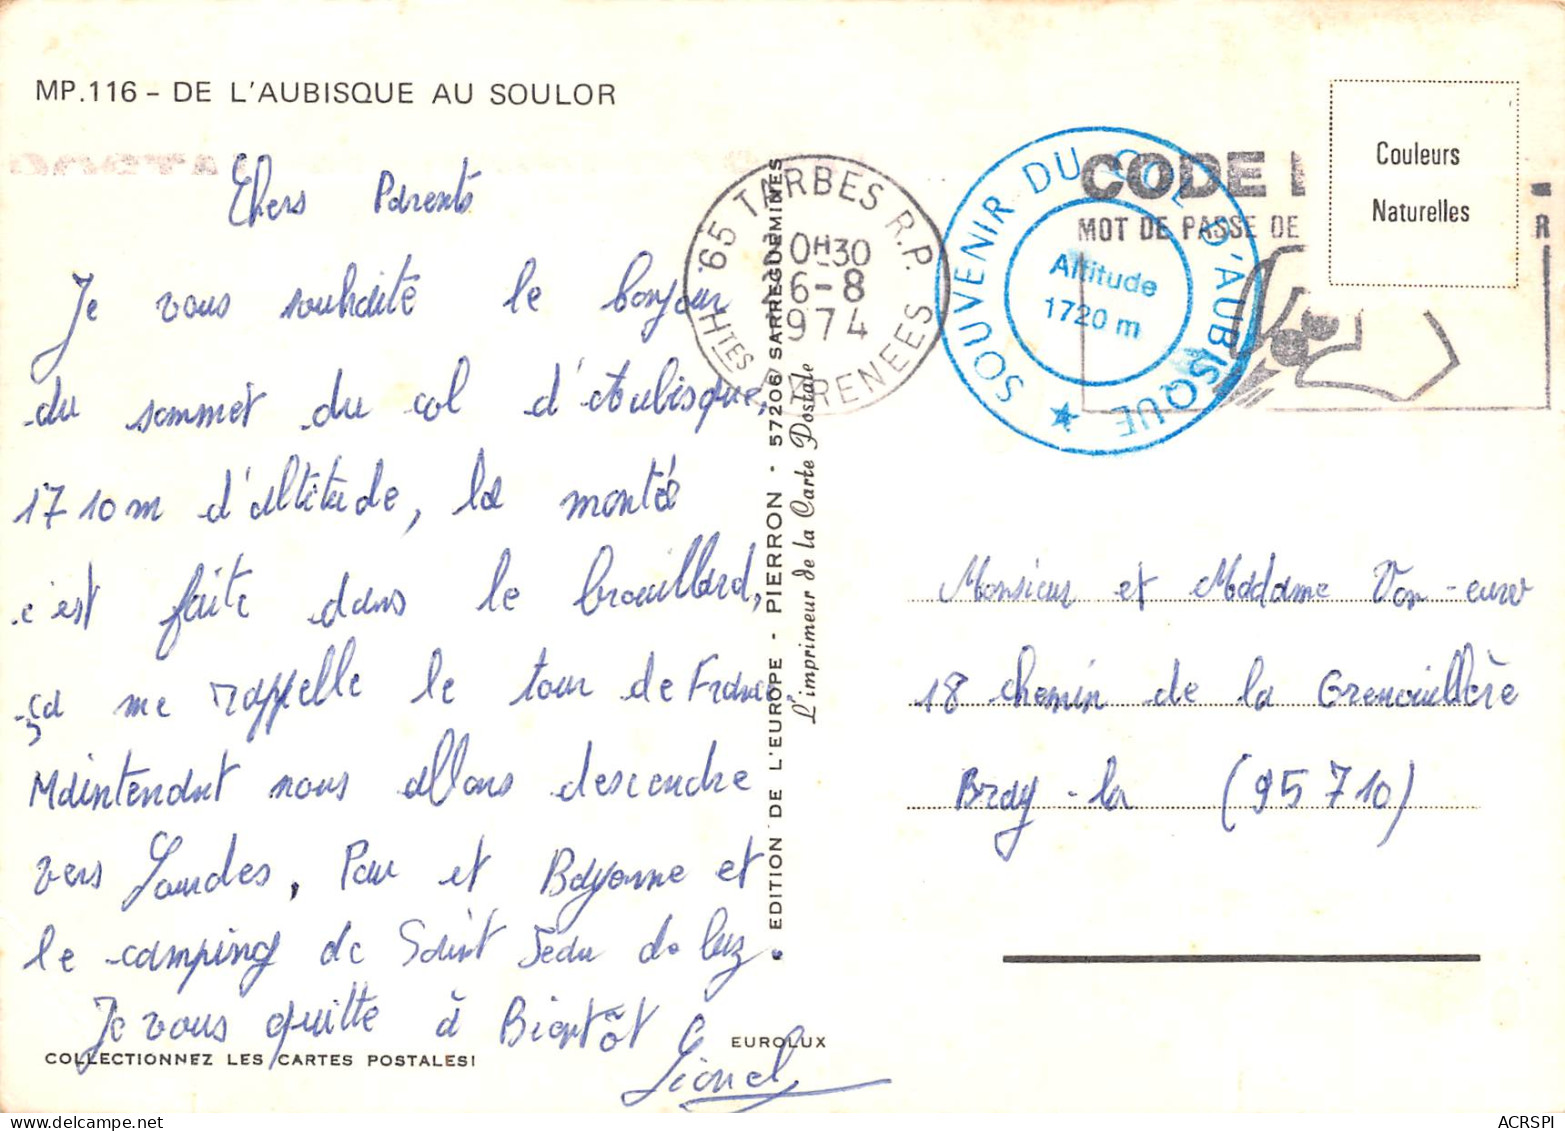 MP.116 – DE L'AUBISQUE AU SOULOR
Chers Parents
Je vous souhaite le bonjour
du sommet du col d'Aubisque,
1710m d'altitude, la montée
c'est faite dans le brouillard,
ça me rappelle le tour de France
Maintenant nous allons descendre
vers Lourdes, Pau et Bayonne et
le camping de Saint Jean de luz.
Je vous quitte à Bientôt
Lionel
COLLECTIONNEZ LES CARTES POSTALES!
EUROLUX
EDITION DE L'EUROPE - PIERRON - 57206 SARREGUEMINES
L'imprimeur de la Carte Postale
65 TARBES R.P.
0H30
6-8
974
HTES PYRENEES
SOUVENIR DU COL D'AUBISQUE
Altitude
1720 m
CODE
MOT DE PASSE DE
R
Couleurs
Naturelles
Monsieur et Madame
18 chemin de la Grenouillère
Bray-la (95710)
ACRSPI